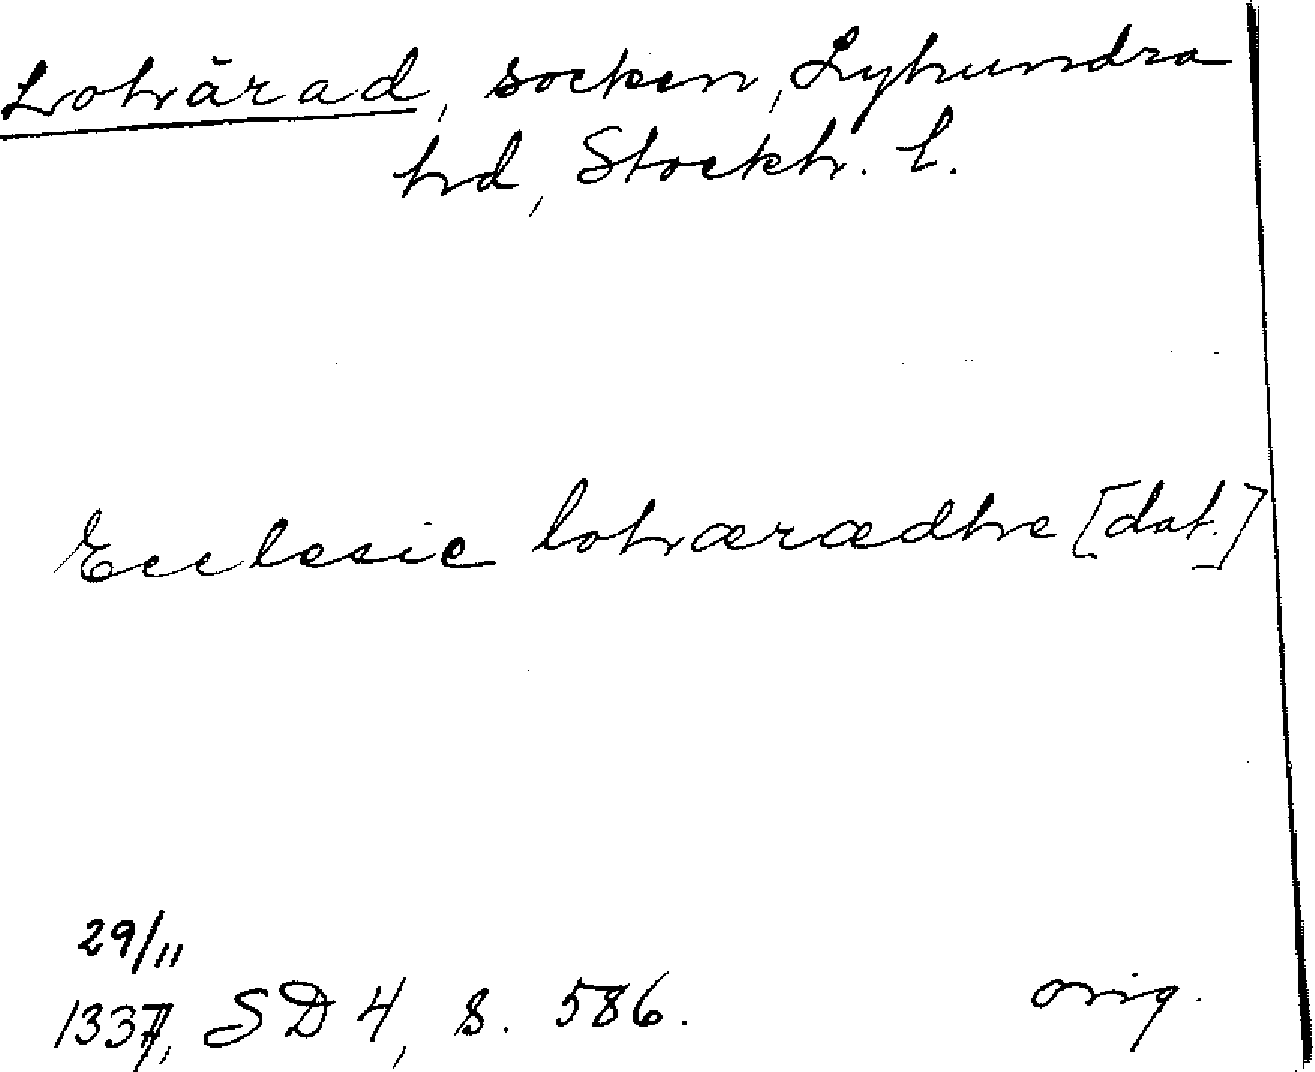 Lohärad, socken, Lyhundra
hd, Stockh. l.
Ecclesie lohæradhe [dat.]
29/11
1337, SD 4, s. 586.
orig.